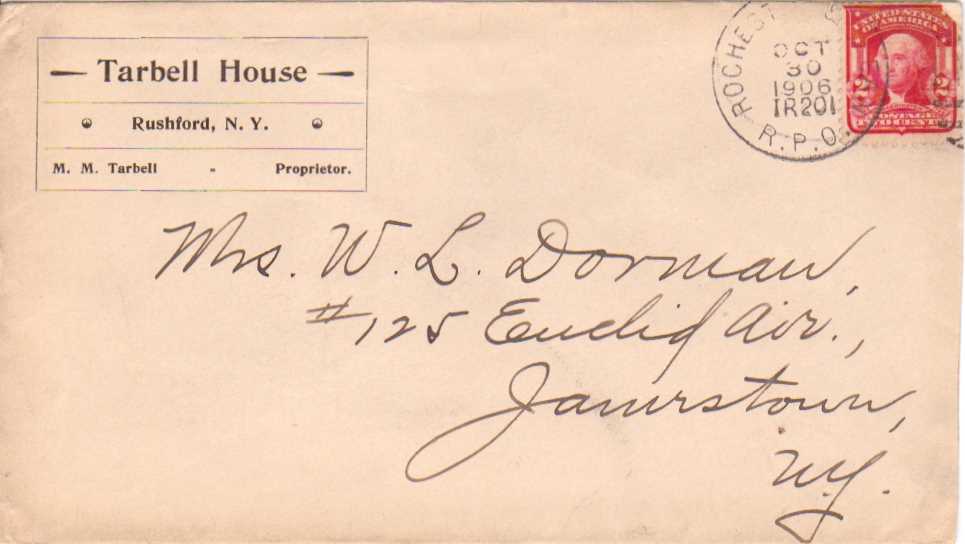 Tarbell House
Rushford, N. Y.
M. M. Tarbell - Proprietor.
ROCHEST
OCT
30
1906
TR201
R.P.O.
UNITED STATES
OF AMERICA
2 2
POSTAGE
TWO CENTS
Mrs. W. L. Dorman,
#125 Euclid Av.,
Jamestown,
N.Y.